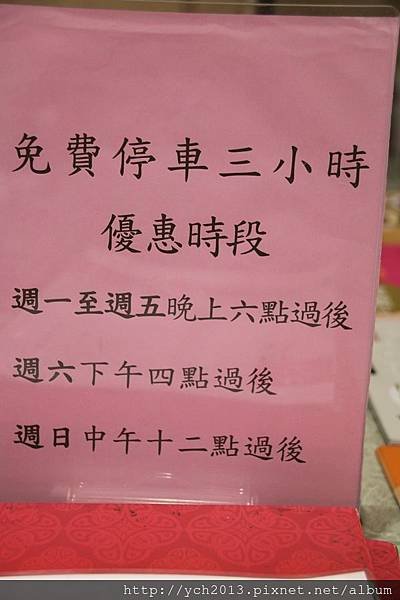 免費停車三小時
優惠時段
週一至週五晚上六點過後
週六下午四點過後
週日中午十二點過後
http://ych2013.pixnet.net/album